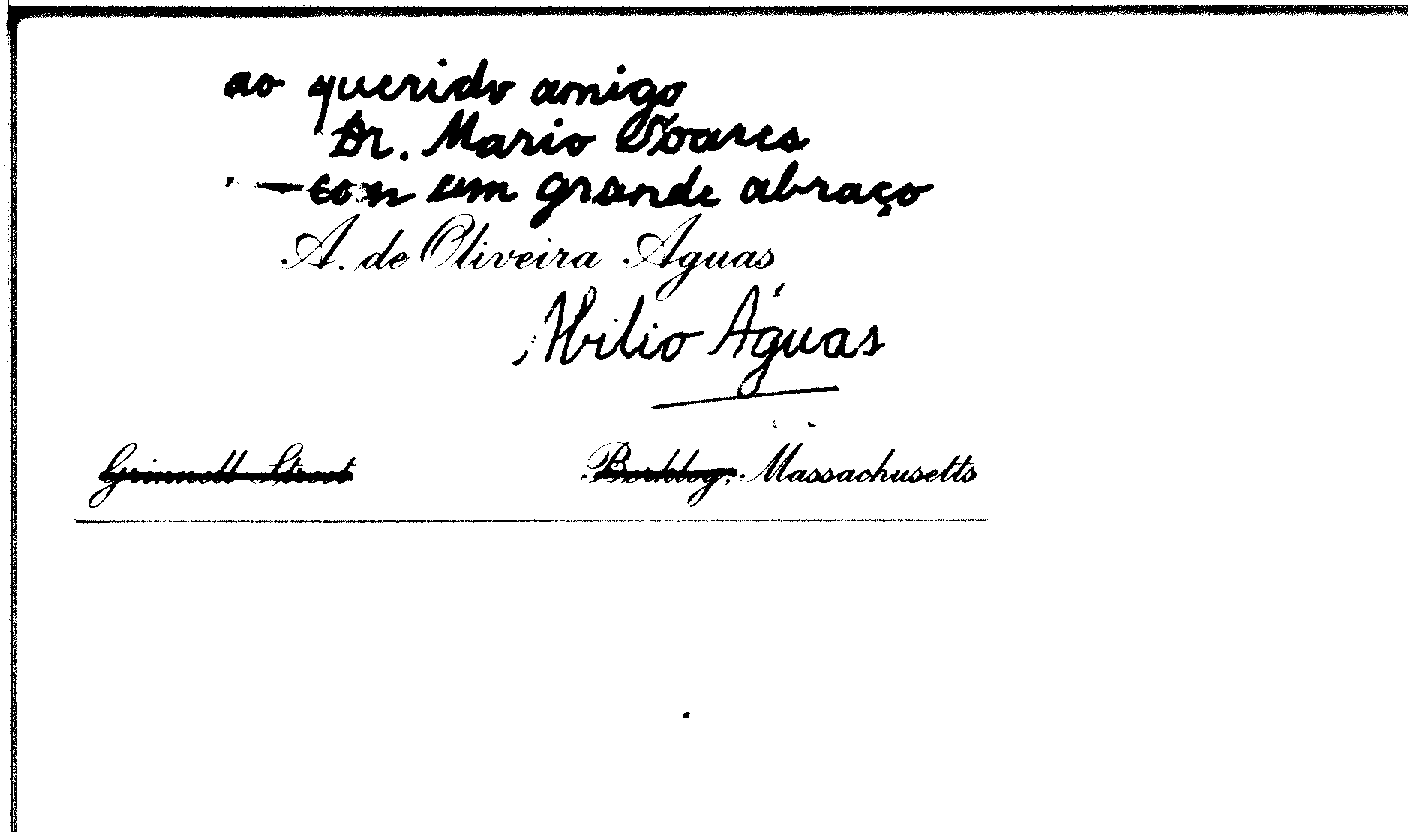 ao querido amigo
Dr. Mario Soares
— com um grande abraço
A. de Oliveira Aguas
Abilio Águas
Grinnell Street Berkley, Massachusetts